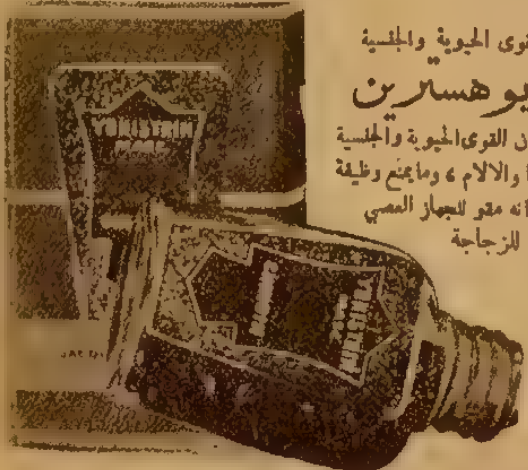 قوى الحيوية والجنسية
يوهسترين
ن القوى الحيوية والجنسية
والالام ، وما يمنع وظيفة
انه مقو للجهاز العصبي
للزجاجة